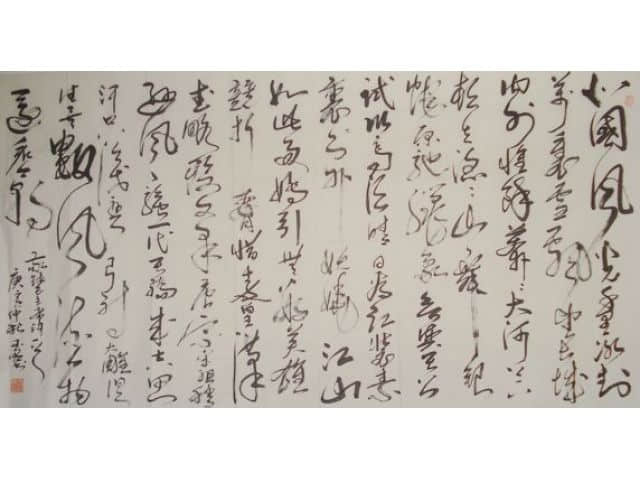 北國風光千里冰封
萬里雪飄望長城
内外惟餘莽々大河上下
頓失滔々山舞銀
蛇原馳蠟象欲與天公
試比高須晴日看紅裝素
裹分外妖嬈江山
如此多嬌引無數英雄
競折腰惜秦皇漢
武略輸文采唐宗宋祖稍
遜風騷一代天驕成吉思
汗只識彎弓射大雕俱
往矣數風流人物
還看今朝
庚寅仲秋